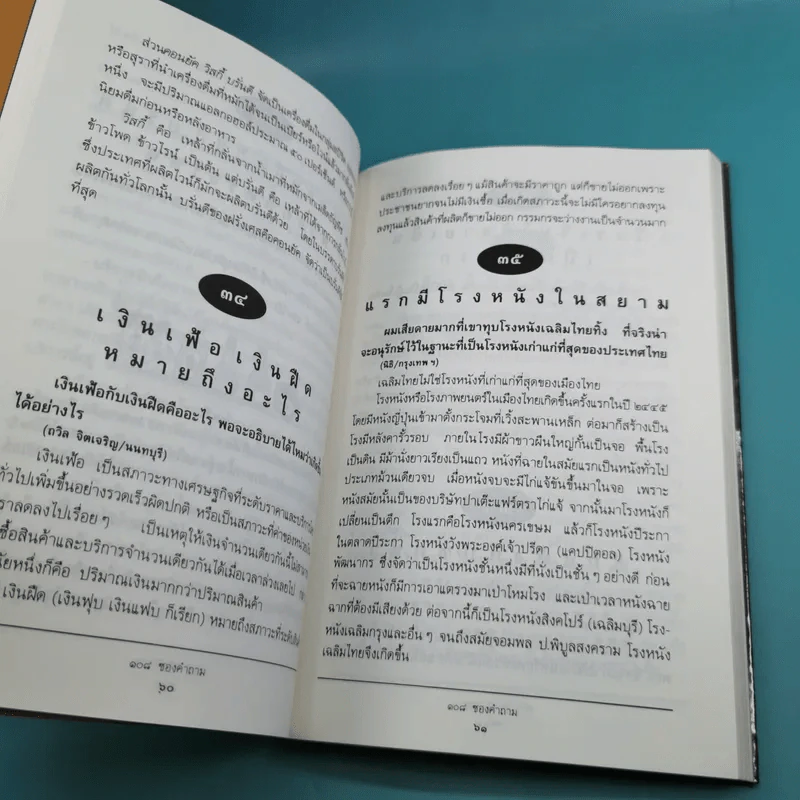 ส่วนคอนยัค วิสกี้ บรั่นดี จัดเป็นเครื่องดื่ม
หรือสุราที่นำเครื่องดื่มที่หมักได้จนเป็นเบียร์หรือไวน์แล้วมา
หนึ่ง จะมีปริมาณแอลกอฮอล์ประมาณ ๕๐ เปอร์เซ็นต์
นิยมดื่มก่อนหรือหลังอาหาร
วิสกี้ คือ เหล้าที่กลั่นจากน้ำเมาที่หมักจากเมล็ดธัญพืช
ข้าวโพด ข้าวไรน์ เป็นต้น แต่บรั่นดี คือ เหล้าที่ได้จากการกลั่น
ซึ่งประเทศที่ผลิตไวน์ก็มักจะผลิตบรั่นดีด้วย โดยในบรรดา
ผลิตกันทั่วโลกนั้น บรั่นดีของฝรั่งเศสคือคอนยัค จัดว่าเป็น
ที่สุด
๓๔
เงินเฟ้อ เงินฝืด
หมายถึงอะไร
เงินเฟ้อกับเงินฝืดคืออะไร พอจะอธิบายได้ไหมว่า
ได้อย่างไร
(ถวิล จิตเจริญ/นนทบุรี)
เงินเฟ้อ เป็นสภาวะทางเศรษฐกิจที่ระดับราคาและบริการ
ทั่วไปเพิ่มขึ้นอย่างรวดเร็วผิดปกติ หรือเป็นสภาวะที่ค่าของ
ราลดลงไปเรื่อยๆ เป็นเหตุให้เงินจำนวนเดียวกันนี้
ซื้อสินค้าและบริการจำนวนเดียวกันได้เมื่อเวลาล่วงเลยไป
ัยหนึ่งก็คือ ปริมาณเงินมากกว่าปริมาณสินค้า
เงินฝืด (เงินฟุบ เงินแฟบ ก็เรียก) หมายถึงสภาวะที่ระดับ
๑๐๘ ซองคำถาม
๖๐
และบริการลดลงเรื่อยๆ แม้สินค้าจะมีราคาถูก แต่ก็ขายไม่ออกเพราะ
ประชาชนยากจนไม่มีเงินซื้อ เมื่อเกิดสภาวะนี้จะไม่มีใครอยากลงทุน
ลงทุนแล้วสินค้าที่ผลิตก็ขายไม่ออก กรรมกรจะว่างงานเป็นจำนวนมาก
๓๕
แรกมีโรงหนังในสยาม
ผมเสียดายมากที่เขาทุบโรงหนังเฉลิมไทยทิ้ง ที่จริงน่า
จะอนุรักษ์ไว้ในฐานะที่เป็นโรงหนังเก่าแก่ที่สุดของประเทศไทย
(นิธิ/กรุงเทพฯ)
เฉลิมไทยไม่ใช่โรงหนังที่เก่าแก่ที่สุดของเมืองไทย
โรงหนังหรือโรงภาพยนตร์ในเมืองไทยเกิดขึ้นครั้งแรกในปี ๒๔๔๕
โดยมีหนังญี่ปุ่นเข้ามาตั้งกระโจมที่เวิ้งสะพานเหล็ก ต่อมาก็สร้างเป็น
โรงมีหลังคารั้วรอบ ภายในโรงมีผ้าขาวผืนใหญ่กั้นเป็นจอ พื้นโรง
เป็นดิน มีม้านั่งยาวเรียงเป็นแถว หนังที่ฉายในสมัยแรกเป็นหนังทั่วไป
ประเภทม้วนเดียวจบ เมื่อหนังจบจะมีไก่แจ้ขันขึ้นมาในจอ เพราะ
หนังสมัยนั้นเป็นของบริษัทปาเต๊ะแฟร์ตราไก่แจ้ จากนั้นมาโรงหนังก็
เปลี่ยนเป็นตึก โรงแรกคือโรงหนังนครเขษม แล้วก็โรงหนังปีระกา
ในตลาดปีระกา โรงหนังวังพระองค์เจ้าปรีดา (แคปปิตอล) โรงหนัง
พัฒนากร ซึ่งจัดว่าเป็นโรงหนังชั้นหนึ่งมีที่นั่งเป็นชั้นๆ อย่างดี ก่อน
ที่จะฉายหนังก็มีการเอาแตรวงมาเป่าโหมโรง และเป่าเวลาหนังฉาย
ฉากที่ต้องมีเสียงด้วย ต่อจากนี้ก็เป็นโรงหนังสิงคโปร์ (เฉลิมบุรี) โรง-
หนังเฉลิมกรุงและอื่นๆ จนถึงสมัยจอมพล ป.พิบูลสงคราม โรงหนัง
เฉลิมไทยจึงเกิดขึ้น
๑๐๘ ซองคำถาม
๖๑